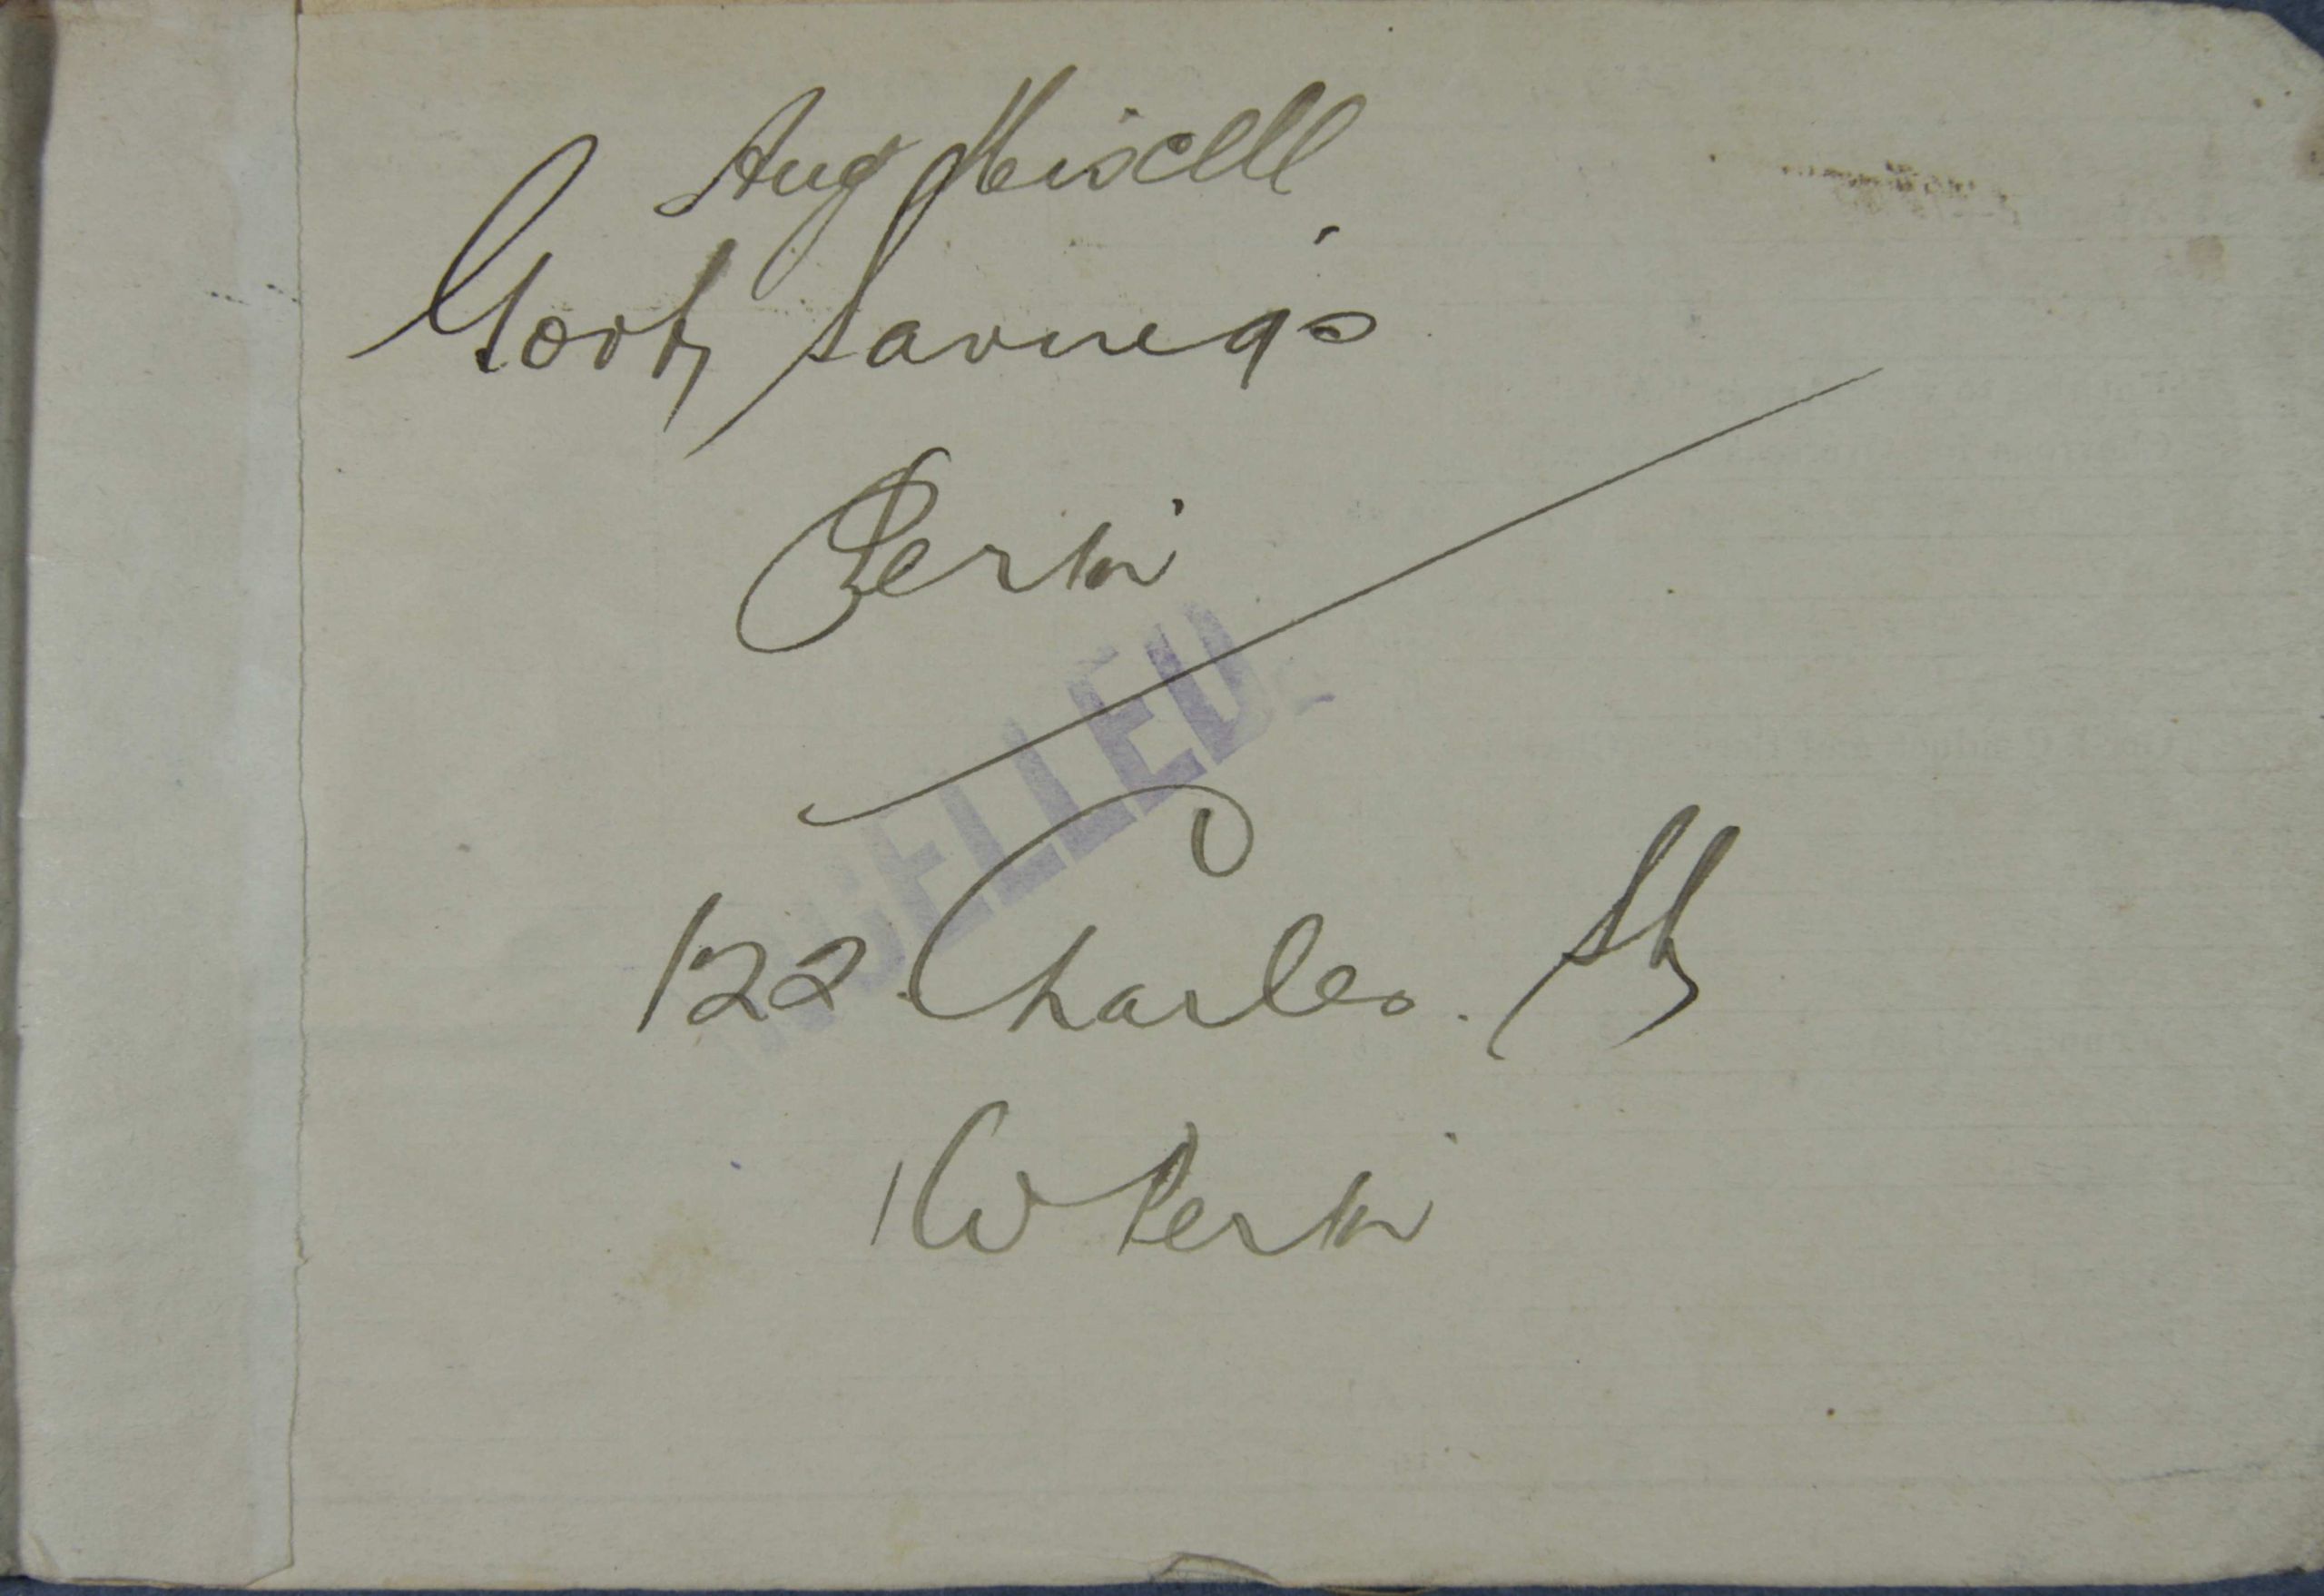 Aug Miscell
Govt Savings
Perth
CELLED
122 Charles St
W Perth